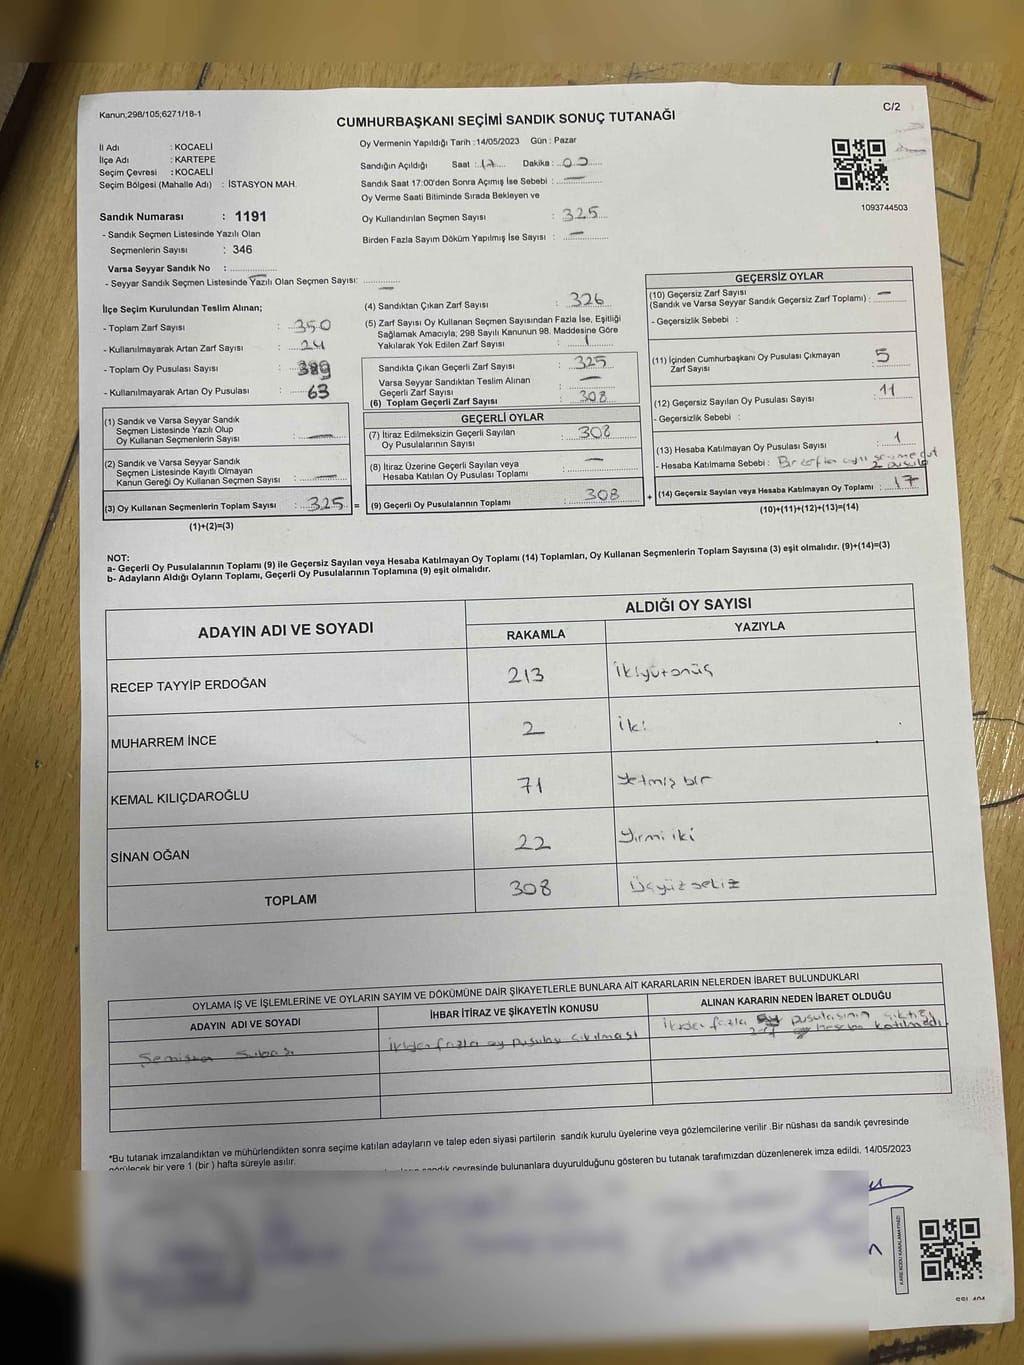 Kanun;298/105;6271/18-1
C/2
CUMHURBAŞKANI SEÇİMİ SANDIK SONUÇ TUTANAĞI
İl Adı : KOCAELİ
İlçe Adı : KARTEPE
Seçim Çevresi : KOCAELİ
Seçim Bölgesi (Mahalle Adı) : İSTASYON MAH.
Oy Vermenin Yapıldığı Tarih :14/05/2023 Gün : Pazar
Sandığın Açıldığı Saat :17 Dakika : 00
Sandık Saat 17:00'den Sonra Açımış İse Sebebi : —
Oy Verme Saati Bitiminde Sırada Bekleyen ve
Oy Kullandırılan Seçmen Sayısı : 325
Birden Fazla Sayım Döküm Yapılmış İse Sayısı : —
1093744503
Sandık Numarası : 1191
- Sandık Seçmen Listesinde Yazılı Olan
Seçmenlerin Sayısı : 346
Varsa Seyyar Sandık No :
- Seyyar Sandık Seçmen Listesinde Yazılı Olan Seçmen Sayısı: —
İlçe Seçim Kurulundan Teslim Alınan;
- Toplam Zarf Sayısı : 350
- Kullanılmayarak Artan Zarf Sayısı : 24
- Toplam Oy Pusulası Sayısı : 389
- Kullanılmayarak Artan Oy Pusulası : 63
(1) Sandık ve Varsa Seyyar Sandık
Seçmen Listesinde Yazılı Olup
Oy Kullanan Seçmenlerin Sayısı : —
(2) Sandık ve Varsa Seyyar Sandık
Seçmen Listesinde Kayıtlı Olmayan
Kanun Gereği Oy Kullanan Seçmen Sayısı : —
(3) Oy Kullanan Seçmenlerin Toplam Sayısı : 325 =
(1)+(2)=(3)
(4) Sandıktan Çıkan Zarf Sayısı : 326
(5) Zarf Sayısı Oy Kullanan Seçmen Sayısından Fazla İse, Eşitliği
Sağlamak Amacıyla; 298 Sayılı Kanunun 98. Maddesine Göre
Yakılarak Yok Edilen Zarf Sayısı : 1
Sandıkta Çıkan Geçerli Zarf Sayısı : 325
Varsa Seyyar Sandıktan Teslim Alınan
Geçerli Zarf Sayısı : —
(6) Toplam Geçerli Zarf Sayısı : 308
GEÇERLİ OYLAR
(7) İtiraz Edilmeksizin Geçerli Sayılan
Oy Pusulalarının Sayısı : 308
(8) İtiraz Üzerine Geçerli Sayılan veya
Hesaba Katılan Oy Pusulası Toplamı : —
(9) Geçerli Oy Pusulalarının Toplamı : 308 +
GEÇERSİZ OYLAR
(10) Geçersiz Zarf Sayısı
(Sandık ve Varsa Seyyar Sandık Geçersiz Zarf Toplamı) : —
- Geçersizlik Sebebi :
(11) İçinden Cumhurbaşkanı Oy Pusulası Çıkmayan
Zarf Sayısı : 5
(12) Geçersiz Sayılan Oy Pusulası Sayısı : 11
- Geçersizlik Sebebi :
(13) Hesaba Katılmayan Oy Pusulası Sayısı : 1
- Hesaba Katılmama Sebebi : Bir
(14) Geçersiz Sayılan veya Hesaba Katılmayan Oy Toplamı : 17
(10)+(11)+(12)+(13)=(14)
NOT:
a- Geçerli Oy Pusulalarının Toplamı (9) ile Geçersiz Sayılan veya Hesaba Katılmayan Oy Toplamı (14) Toplamları, Oy Kullanan Seçmenlerin Toplam Sayısına (3) eşit olmalıdır. (9)+(14)=(3)
b- Adayların Aldığı Oyların Toplamı, Geçerli Oy Pusulalarının Toplamına (9) eşit olmalıdır.
ADAYIN ADI VE SOYADI ALDIĞI OY SAYISI
RAKAMLA YAZIYLA
RECEP TAYYİP ERDOĞAN 213 İkiyüzonüç
MUHARREM İNCE 2 iki
KEMAL KILIÇDAROĞLU 71 Yetmiş bir
SİNAN OĞAN 22 Yirmi iki
TOPLAM 308 Üçyüz sekiz
OYLAMA İŞ VE İŞLEMLERİNE VE OYLARIN SAYIM VE DÖKÜMÜNE DAİR ŞİKAYETLERLE BUNLARA AİT KARARLARIN NELERDEN İBARET BULUNDUKLARI
ADAYIN ADI VE SOYADI İHBAR İTİRAZ VE ŞİKAYETİN KONUSU ALINAN KARARIN NEDEN İBARET OLDUĞU
İkiden fazla oy pusulası çıkılması İkiden fazla oy pusulasının çıktığı
zarf hesaba katılmadı
*Bu tutanak imzalandıktan ve mühürlendikten sonra seçime katılan adayların ve talep eden siyasi partilerin sandık kurulu üyelerine veya gözlemcilerine verilir .Bir nüshası da sandık çevresinde
görülecek bir yere 1 (bir ) hafta süreyle asılır.
sandık çevresinde bulunanlara duyurulduğunu gösteren bu tutanak tarafımızdan düzenlenerek imza edildi. 14/05/2023